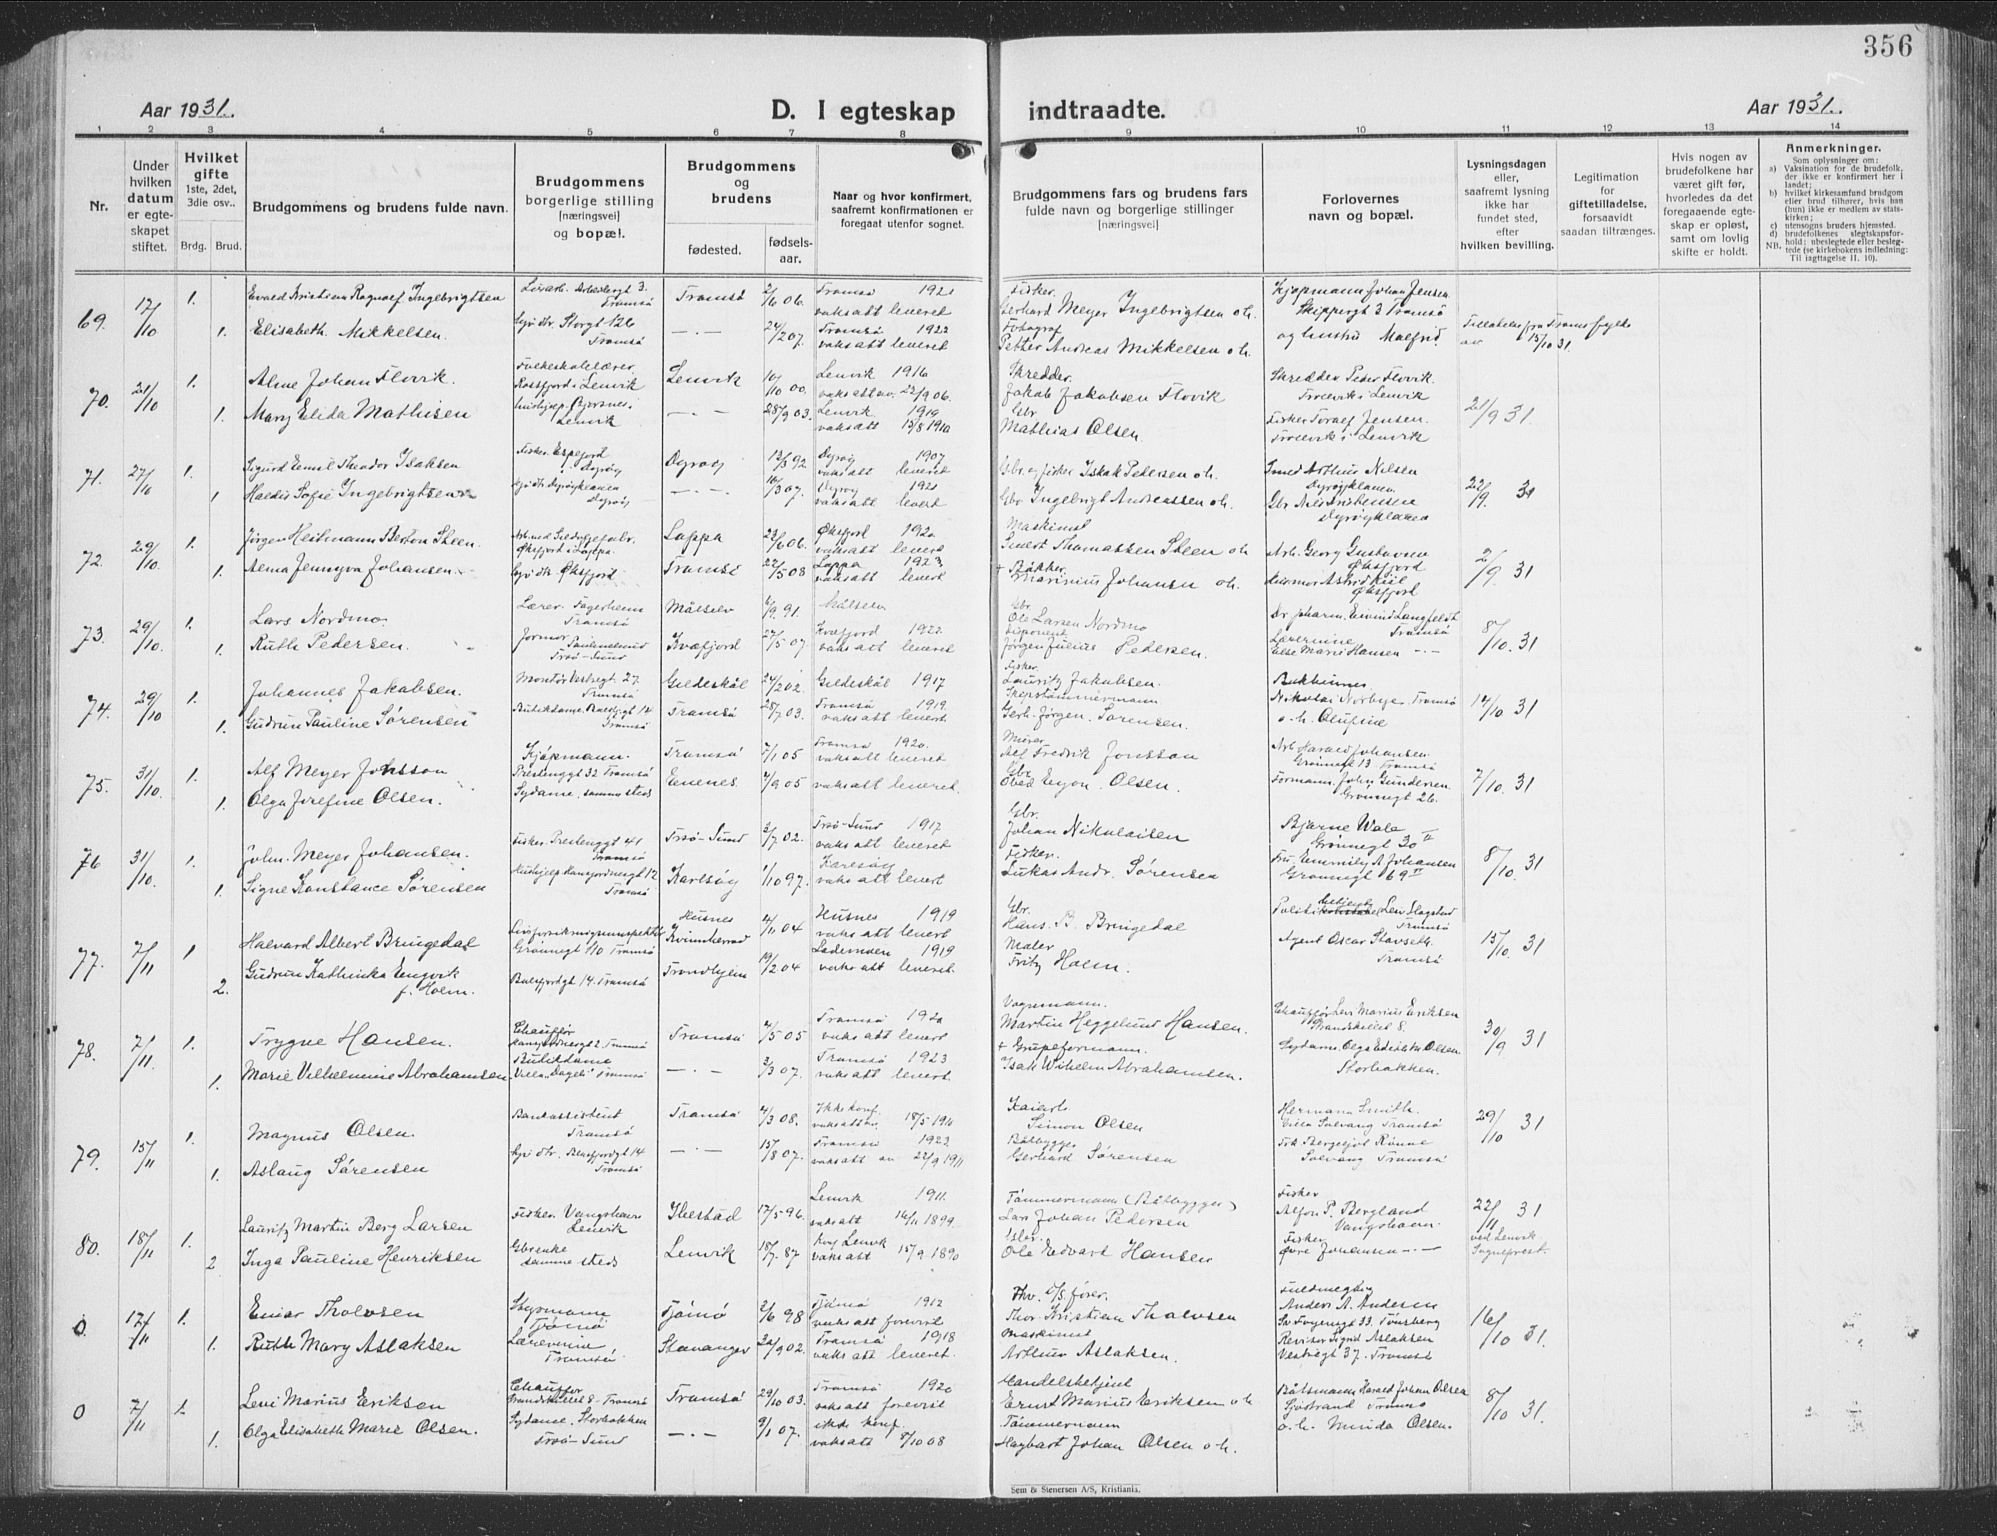 356
Aar 1931.
D. I egteskap indtraadte.
Aar 1931.
1 2 3 4 5 6 7 8 9 10 11 12 13 14
Nr.
Under hvilken datum er egteskapet stiftet.
Hvilket gifte
1ste, 2det, 3die osv..
Brdg. Brud.
Brudgommens og brudens fulde navn.
Brudgommens borgerlige stilling [næringsvei] og bopæl.
Brudgommens og brudens
fødested.
fødselsaar.
Naar og hvor konfirmert, saafremt konfirmationen er foregaat utenfor sognet.
Brudgommens fars og brudens fars fulde navn og borgerlige stillinger [næringsvei]
Forlovernes navn og bopæl.
Lysningsdagen eller, saafremt lysning ikke har fundet sted, efter hvilken bevilling.
Legitimation for giftetilladelse, forsaavidt saadan tiltrænges.
Hvis nogen av brudefolkene har været gift før, hvorledes da det foregaaende egteskap er opløst, samt om lovlig skifte er holdt.
Anmerkninger.
Som oplysninger om:
a) Vaksination for de brudefolk, der ikke er konfirmert her i landet;
b) hvilket kirkesamfund brudgom eller brud tilhører, hvis han (hun) ikke er medlem av statskirken;
c) utensogns bruders hjemsted.
d) brudefolkenes slegtskapsforhold: ubeslegtede eller beslegtede (se kirkebokens indledning: Til iagttagelse II. 10).
NB.
69. 17/10 1. Evald Kristian Ragnalf Ingebrigtsen Tromsø 2/6 06. Tromsø 1921 vaksatt leveret Fisker. Gerhard Meyer Ingebrigtsen o.h. Kjøpmann Johan Jensen Skippergt 3 Tromsø
1. Elisabeth Mikkelsen. Storgt 126 Tromsø -.- 24/2 07. Tromsø 1922 vaksatt leveret Fotograf Petter Andreas Mikkelsen o.h. og hustru Malfrid. 15/10 31.
70. 21/10 1. Alme Johan Flovik. Folkeskolelærer. Rossfjord i Lenvik Lenvik 10/10 00. Lenvik 1916 vaksatt av. 22/9 06. Skredder. Jakob Jakobsen Flovik Skredder Peder Flovik. Lenvik 21/9 31.
1. Mary Elida Mathisen Lenvik -.- 28/9 03. Lenvik 1919 vaksatt 15/8 1910 Gbr Mathias Olsen Fisker Toralf Jensen Lenvik
71. 27/10 1. Sigurd Emil Theodor Isaksen Fisker. Espejord Dyrøy Dyrøy 13/3 92 Dyrøy 1907 vaksatt leveret Gbr. og fisker Isak Pedersen o.h. Arthur Nilsen 22/9. 31
1 Haldis Sofie Ingebrigtsen Dyrøy -.- 10/3 07. Dyrøy 1921 vaksatt levert Gbr Ingebrigt Andreassen o.h. Gbr Nils Kristensen
72. 29/10. 1. Jørgen Heitmann Berton Steen. Øksfjord i Loppa. Loppa 22/6 06. Øksfjord 1920 vaksatt leveret Maskinist Thomassen Steen o.h Arb. Georg Gustavsen Øksfjord 2/9 31
1. Alma Jennyva Johansen. Øksfjord Tromsø 22/5 08 Loppa 1923 vaksatt leveret + Bakker. Marinius Johansen o.h. Jordmor Astrid Kiil Øksfjord
73. 29/10. 1. Lars Nordmo. Lærer. Fagerheim Tromsø Målselv 6/9 91. Målselv Gbr. Ole Larsen Nordmo Eivind Langfeldt Tromsø 8/10. 31
1. Ruth Pedersen. Tromsø-Sund Kvæfjord 27/5 07 Kvæfjord 1922 vaksatt leveret Disponent Jørgen Julius Pedersen. Lærerinne Else Marie Hansen -.-
74. 29/10 1. Johannes Jakobsen. Montør Vestregt 27. Tromsø Gildeskål 24/2 02. Gildeskål 1917 Fisker. Lauritz Jakobsen. Nikolai Norbye. Tromsø 14/10 31
1. Gudrun Pauline Sørensen Butikdame. Balsfjgt 14 Tromsø Tromsø 28/7 03. Tromsø 1919. vaksatt levert Gerh. Jørgen. Sørensen. o.h. Olufine
75. 31/10. 1. Alf Meyer Johsson Kjøpmann. Prestenggt 32 Tromsø Tromsø 7/1 05 Tromsø 1920. vaksatt leveret Murer Alf Fredrik Jonsson Arb Harald Johansen. Grønnegt 13 Tromsø 7/10. 31
1. Olga Josefine Olsen. Sydame. sammesteds Evenes 4/9 05 vaksatt leveret. Gbr Obed Olsen. Formann. John Gundersen Grønnegt 26.
76 31/10. 1. John. Meyer Johansen. Fisker. Prestenggt 41 Tromsø Trsø-Sund 3/7 02. Trsø-Sund 1917 vaksatt leveret Gbr. Johan Nikolaisen Bjarne Wale Grønnegt 30 II 8/10. 31
1. Signe Konstance Sørensen Tromsø Karlsøy 1/10 97. Karlsøy vaksatt levert Fisker. Lukas Andr. Sørensen Fru Emmily A Johansen Grønnegt 69 II
77. 7/11 1. Halvard Albert Bringedal Grønnegt 110 Tromsø Husnes Kvinnherrad 4/11 04 Husnes 1919 vaksatt levert Gbr. Hans. B. Bringedal Politibetjent Lev Hogstad Tromsø 15/10. 31
2. Gudrun Kathinka Engvik f. Holm. Balsfjordgt 14. Tromsø Trondhjem 19/2 04 Lademoen 1919 vaksatt leveret. Maler Fritz Holm. Agent Oscar Stavseth. Tromsø
78. 7/11. 1. Trygve Hansen. Chauffør Tromsø Tromsø 4/5 05 Tromsø 1920 vaksatt levert Vognmann. Martin Heggelund Hansen. Chauffør Levi Marius Eriksen 8. 30/9 31
1. Marie Vilhelmine Abrahamsen. Butikdame Villa "Dageli" Tromsø -.- 3/3 07. Tromsø 1923 vaksatt levert + Grupeformann. Isak Wilhelm Abrahamsen. Sydame. Olga Elisabeth Olsen Storbakken.
79. 15/11 1. Magnus Olsen. Bankassistent Tromsø Tromsø 4/3 08. Ikke konf. vaksatt av. 18/5 1911 Kaiarb Simon Olsen Hermann Smith. Solvang Tromsø 29/10 31
1. Aslaug Sørensen Balsfjordgt 14 Tromsø -.- 15/8 07. Tromsø 1922 vaksatt av 22/9 1911 Båtbygger Gerhard Sørensen Frk Bergljot Rønne Solvang Tromsø
80. 18/11 1. Lauritz Martin Berg Larsen Fisker Vangshavn Lenvik Ibestad 17/5 96. Lenvik 1911. vaksatt 14/11 1899. Tømmermann (Båtbygger) Lars Johan Pedersen Fisker Alfon P. Bergland Vangshavn. 22/11 31
2 Inga Pauline Henriksen sammesteds Lenvik 18/7. 87 Konf Lenvik vaksatt 15/9 1890 Gbr. Ole Edvart Hansen Fisker Øvre Johansen -.- ved Lenvik Sogneprest.
0. 17/11 1. Einar Tholvsen Styrmann Tjømø Tjømø 2/6 98 Tjømø 1912 vaksatt forevist Thor Kristian Tholvsen Anders A. Andersen Sv Foyensgt 33 Tønsberg 16/10 31.
1. Ruth Mary Aslaksen Lærerinne Tromsø. Stavanger 20/9 02. Tromsø 1918 vaksatt leveret. Maskinist Arthur Aslaksen. Revisor Sigrid Aslaksen Vestregt 37. Tromsø
0 7/11 1. Levi Marius Eriksen Chauffør 8 - Tromsø Tromsø 29/10 03. Tromsø 1920 vaksatt forevist Handelsbetjent Ernst Marius Eriksen o.h Båtsmann Harald Johan Olsen Sjøstrand Tromsø 8/10 31.
1. Olga Elisabeth Marie Olsen. Sydame. Storbakken Trsø-Sund -.- 9/1 07. ikke konf. vaksatt 8/10 08 Tømmermann Hagbart Johan Olsen o.h. o.h. Minda Olsen.
Sem & Stenersen A/S, Kristiania.